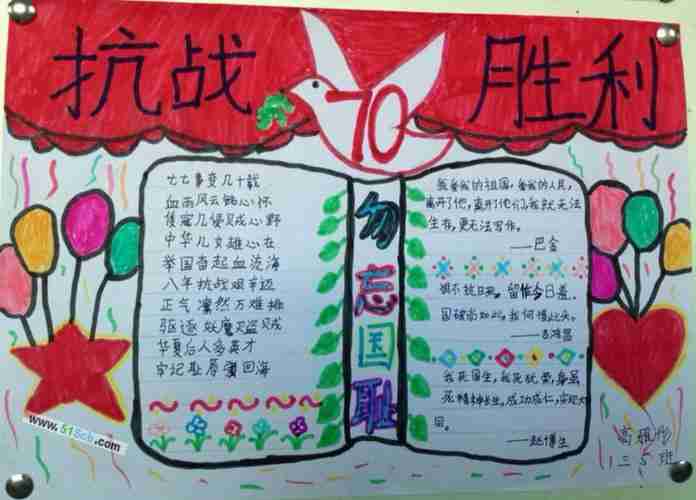 抗战 70 胜利
七七事变几十载
血雨风云铭心怀
倭寇几侵灭心野
中华儿女雄心在
举国奋起血流海
八年抗战艰辛边
正气凛然万难排
驱逐妖魔灭盗贼
华夏后人多英才
牢记耻辱
勿忘国耻
我爱我的祖国,爱我的人民,
离开了他,离开了他们,我就无法
生存,更无法写作。
——巴金
恨不抗日死,留作今日羞。
国破尚如此,我何惜此头。
——吉鸿昌
我死国生,我死犹荣,身虽
死精神长生,成功成仁,实现大
同。
——赵博生
高
三5班
www.51Scb.com